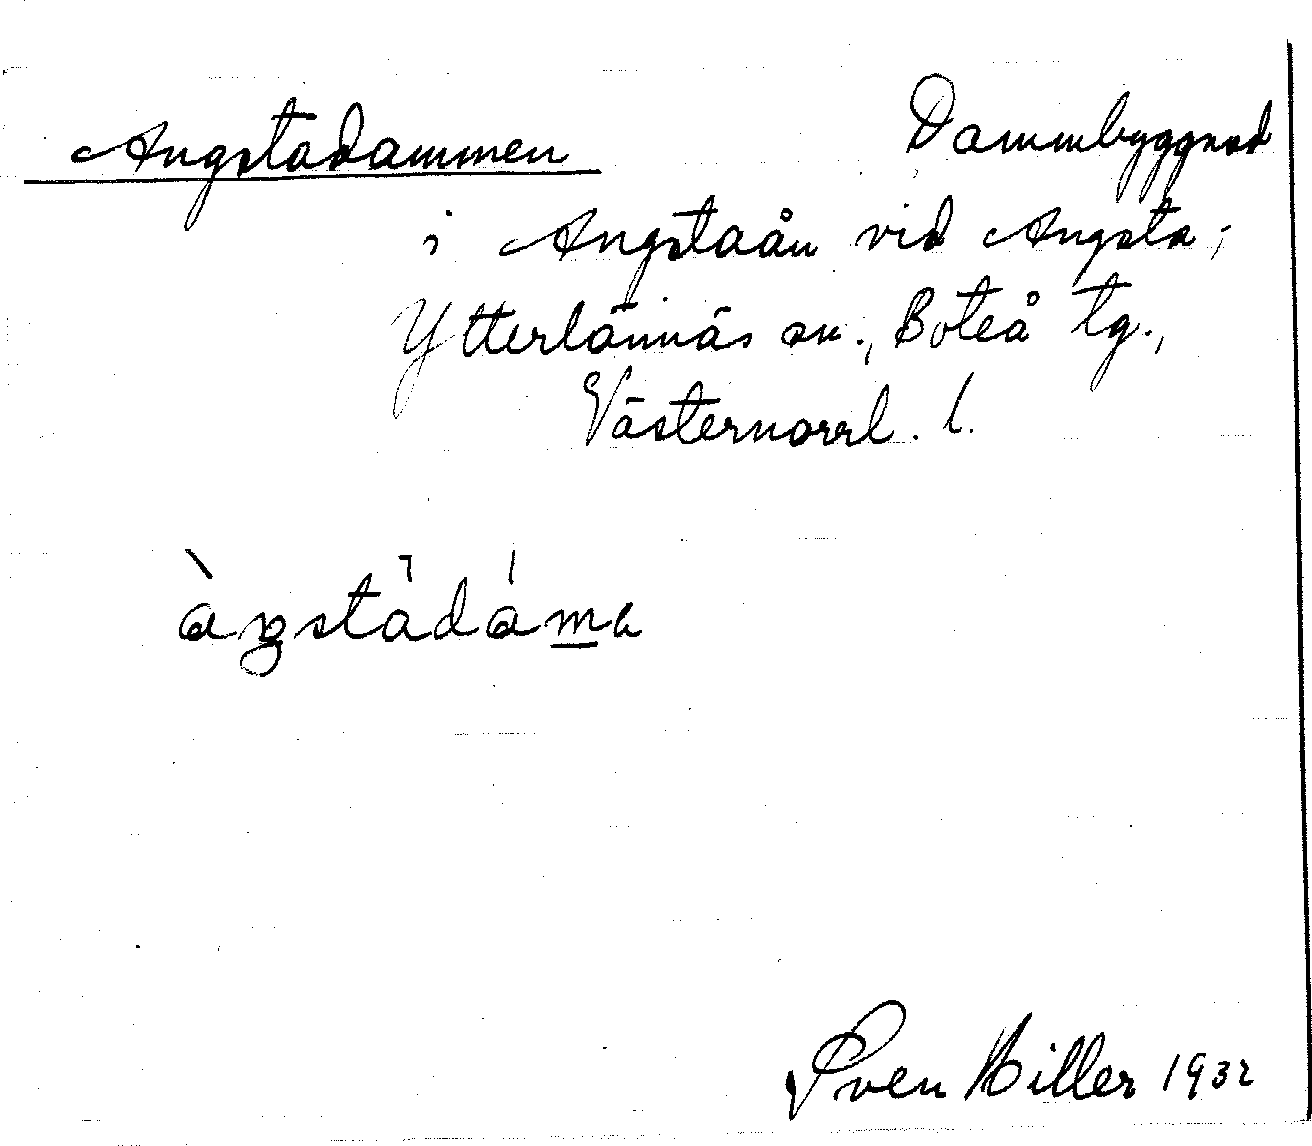 Angstadammen Dammbyggnad
i Angstaån vid Angsta,
Ytterlännäs sn., Boteå tg.,
Västernorrl. l.
àŋstàdáma
Sven Hiller 1932